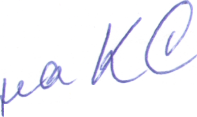 на КС